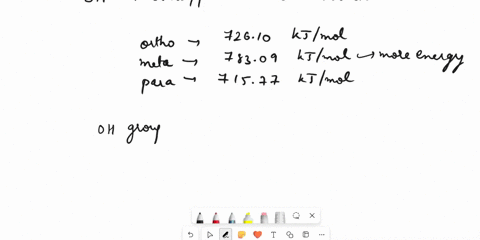 OH
ortho → 726.10 kJ/mol
meta → 783.09 kJ/mol → more energy
para → 715.77 kJ/mol
OH group